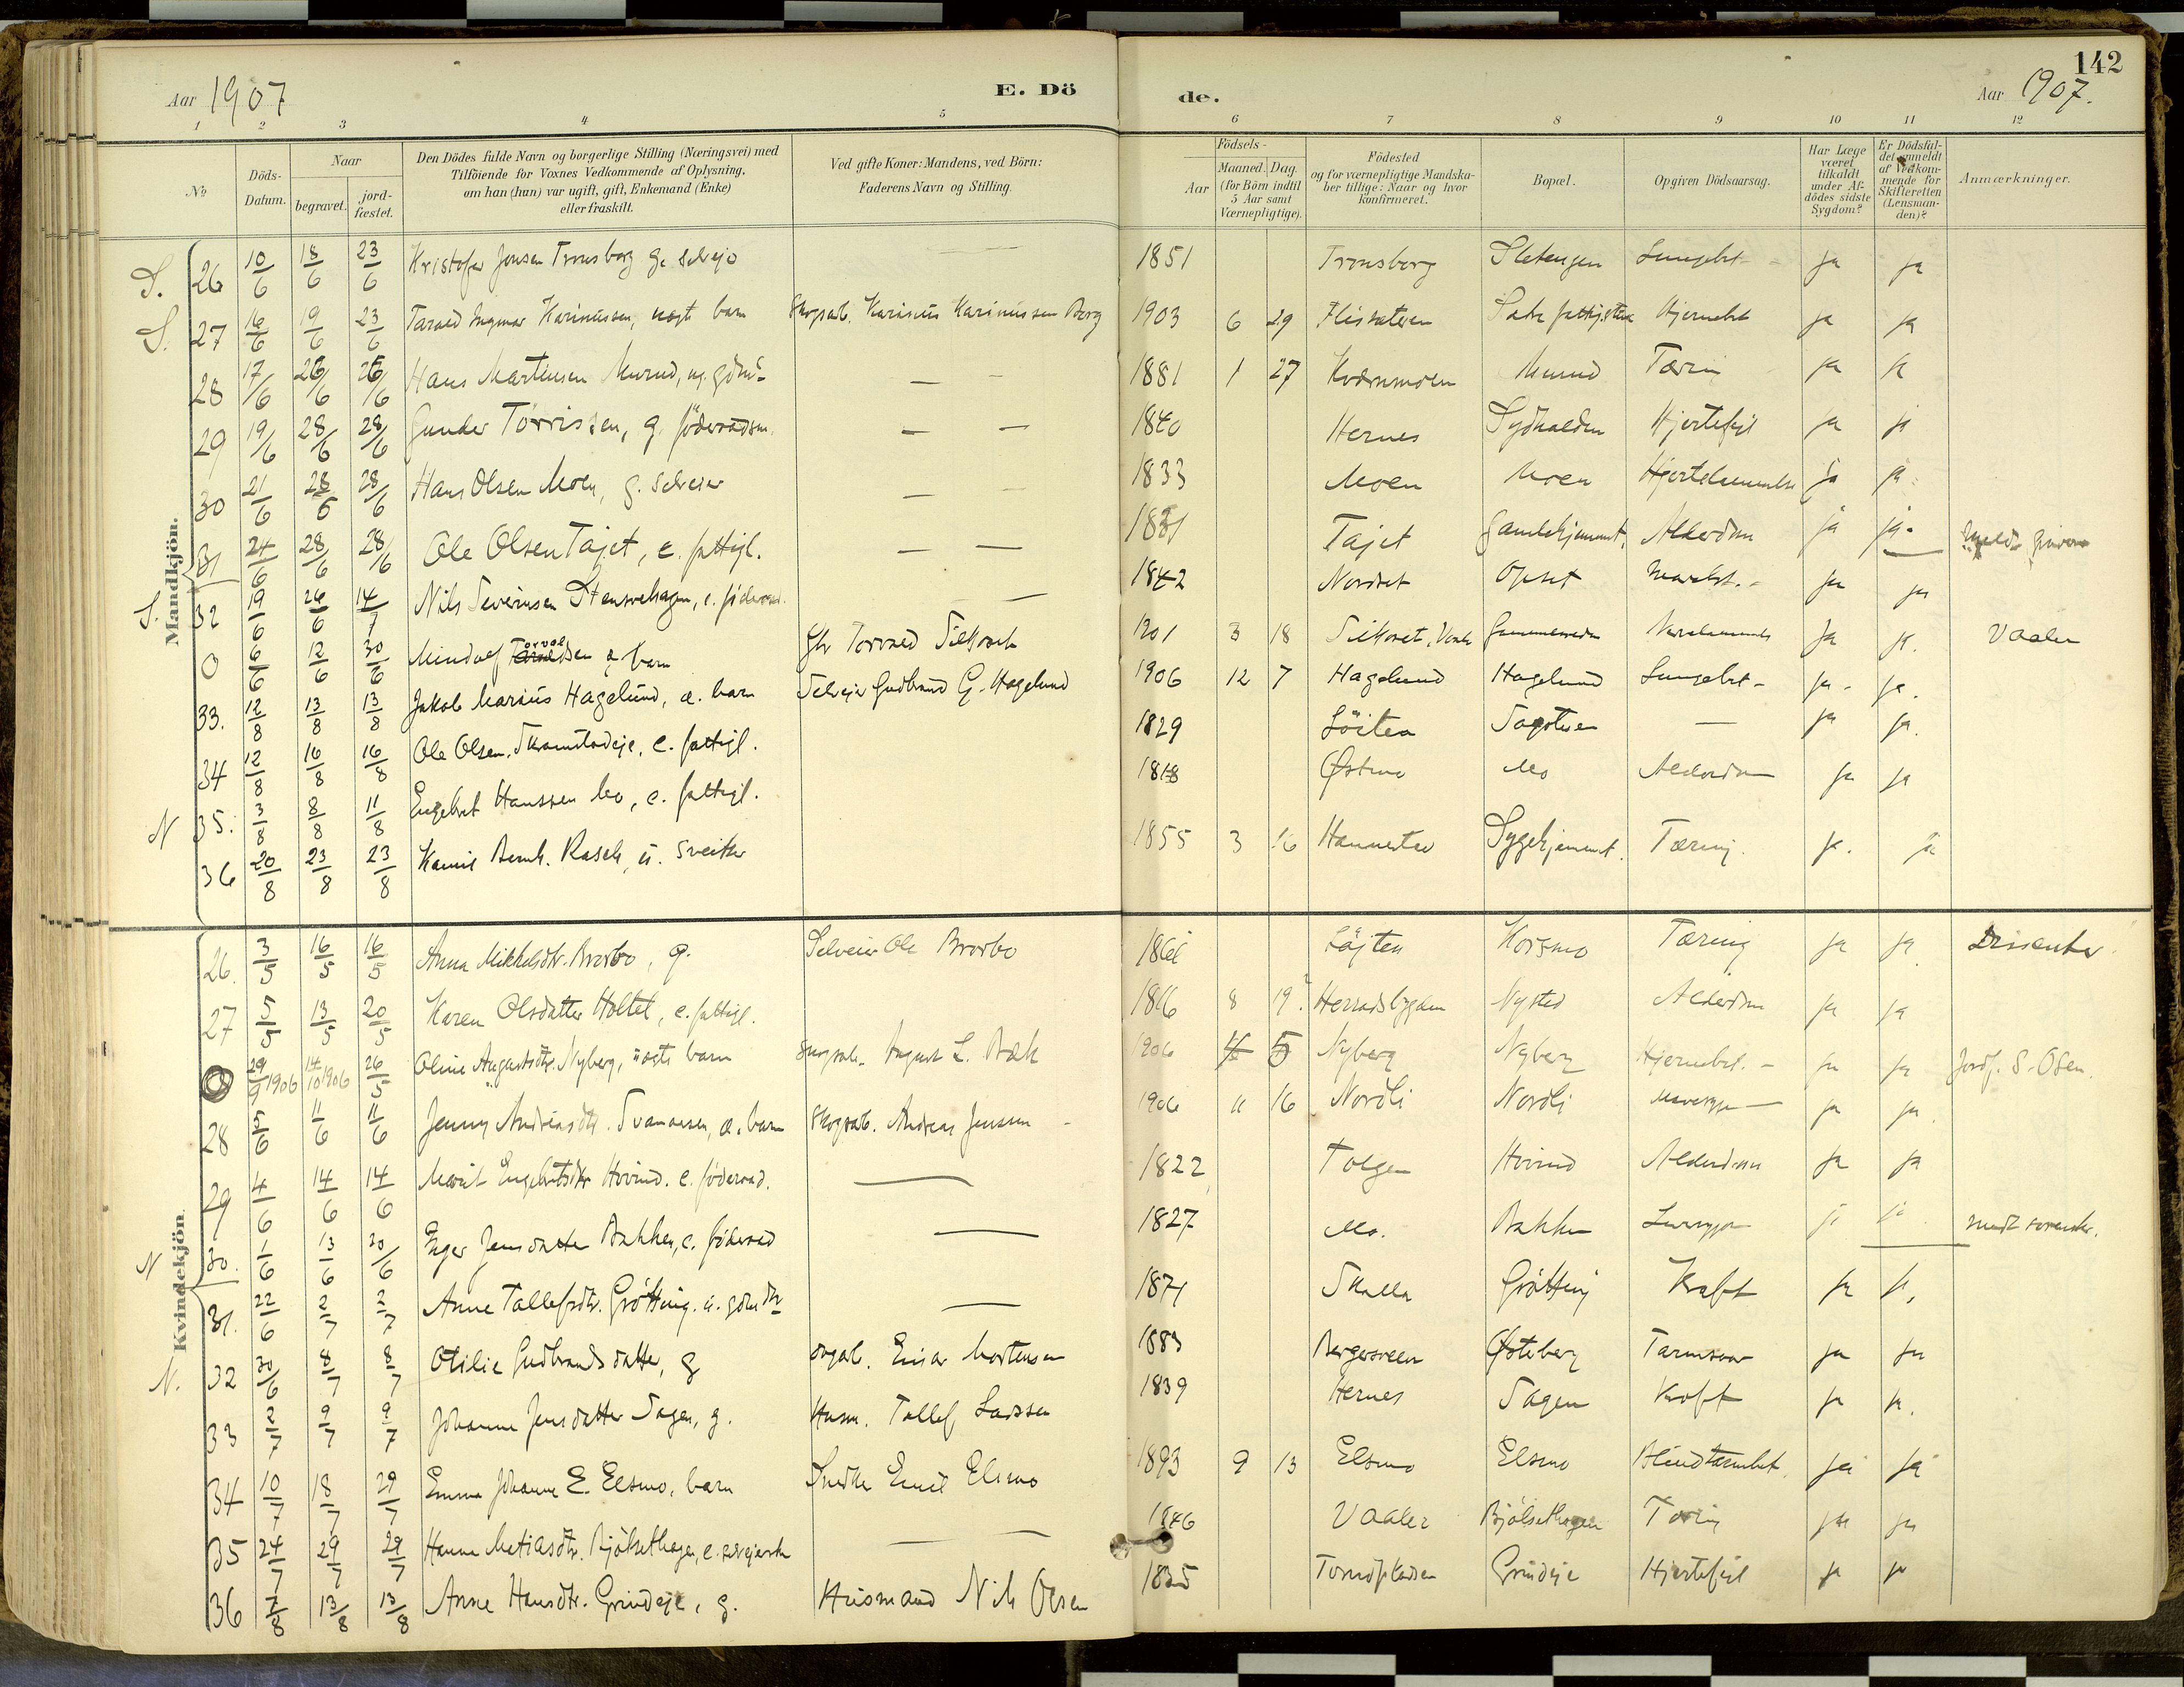 142
Aar 1907 E. Dö de. Aar 1907.
1 2 3 4 5 6 7 8 9 10 11 12
No
Döds-Datum.
Naar
begravet.
jord-fæstet.
Den Dödes fulde Navn og borgerlige Stilling (Næringsvei) med
Tilföiende for Voxnes Vedkommende af Oplysning,
om han (hun) var ugift, gift, Enkemand (Enke)
eller fraskilt.
Ved gifte Koner: Mandens, ved Börn:
Faderens Navn og Stilling.
Födsels-
Aar
Maaned. Dag.
(for Börn indtil
5 Aar samt
Værnepligtige).
Födested
og for værnepligtige Mandska-
ber tillige: Naar og hvor
konfirmeret.
Bopæl.
Opgiven Dödsaarsag.
Har Læge
været
tilkaldt
under Af-
dödes sidste
Sygdom?
Er Dödsfal-
det anmeldt
af Vedkom-
mende for
Skifteretten
(Lensman-
den)?
Anmærkninger.
Mandkjön.
S. 26 10/6 18/6 23/6 Kristofer Jonsen Tronsborg g. selvejer — — 1851 Tronsborg Sletengen Lungebet. ja ja
S. 27 16/6 19/6 23/6 Ingmar Karinussen, uægte barn Skogsarb. Karinus Karinussen Berg 1903 6 29 Flissæteren Hjernebet ja ja
28 17/6 26/6 26/6 Hans Martinsen Murud, ug. — — 1881 1 27 Kværnmoen Murud Tæring ja ja
29 19/6 28/6 28/6 Gunder Törrissen, g. föderaadsm. — — 1840 Hernes Sydhalden Hjertefejl ja ja
30 21/6 28/6 28/6 Hans Olsen Moen, g. selveier — — 1833 Moen Moen Hjertelammelse ja ja
31 24/6 28/6 28/6 Ole Olsen Tajet, e. fattigl. — — 1831 Tajet Gamlehjemmet, Alderdom ja ja.
S. 32 19/6 26/6 14/7 Nils Severinsen Stensvehagen, e. föderaad. — 1842 Nordset Opset ja ja
0 6/6 12/6 30/6 Mindolf Torvaldsen æ barn Torvald Silkoset 1901 3 18 Silkoset, Vaaler ja ja. Vaaler
33. 12/8 13/8 13/8 Jakob Marius Hagelund, æ. barn Selvejer Gudbrand G. Hagelund 1906 12 7 Hagelund Hagelund Lungebet- ja. ja.
34 12/8 16/8 16/8 Ole Olsen Skramstadeje, e. fattigl. 1829 Löiten Sagstuen — ja ja.
N 35. 3/8 8/8 11/8 Engebret Hanssen Mo, e. fattigl. 1818 Østmo Mo Alderdom ja ja
36 20/8 23/8 23/8 Kamil Bernh. Rasch, u. sveitser 1855 3 16 Hannestad Sygehjemmet. Tæring ja. ja
Kvindekjön.
26. 3/5 16/5 16/5 Anna Mikkelsdtr. Brorbo, g. Selveier Ole Brorbo 1866 Löjten Korsmo Tæring ja ja Dissenter.
27 5/5 13/5 20/5 Karen Olsdatter Holtet, e. fattigl. 1816 8 19? Herradsbygden Nysted Alderdom ja ja
0 29/9 1906 14/10 1906 26/5 Oline Augustsdtr. Nyberg, uægte barn Skogsarb. August L. Bæk 1906 4 5 Nyberg Nyberg Hjernebet. - ja ja Jordf. S. Osen
28 5/6 11/6 11/6 Jenny Andreasdtr. Svanaasen, æ. barn Skogsarb. Andreas Jenssen 1906 11 16 Nordli Nordli ja ja.
29 4/6 14/6 14/6 Marit Engebretsdtr Hovind. e. föderaad. — 1822 Tolgen Hovind Alderdom ja ja
N 30. 1/6 13/6 30/6 Inger Jensdatter Bakken, e. föderaad — 1827 Mo. Bakken ja ja
31. 22/6 2/7 2/7 Anne Tollefsdtr. Grötting. u. — 1871 Skalla Grötting Kræft ja ja,
N. 32 30/6 8/7 8/7 Otilie Gudbrandsdatter, g Einar Mortensen 1883 Bergersveen Østeberg ja ja
33 2/7 9/7 9/7 Johanne Jensdatter Sagen, g. Husm. Tollef Larssen 1839 Hernes Sagen Kræft ja ja.
34 10/7 18/7 29/7 Emma Johanne E. Elsmo, barn Snedker Emil Elsmo 1893 9 13 Elsmo Elsmo Blindtarmbet. ja ja
35 24/7 29/7 29/7 Hanna Matiasdtr. Bjölsethagen, e. selvejerske — 1846 Vaaler Bjölsethagen Tæring ja ja
36 7/8 13/8 13/8 Anne Hansdtr. Grindeje, g. Husmand Nils Olsen 1835 Grindeje Hjertefeil ja ja